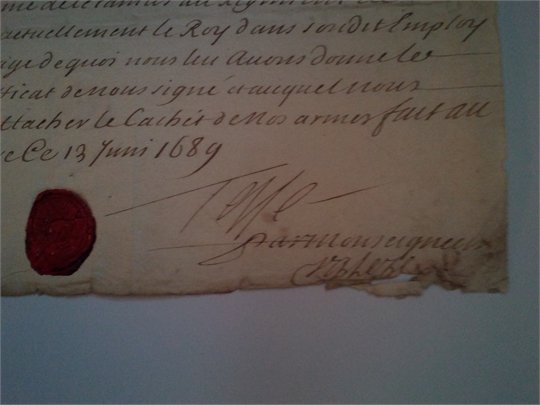 actuellement le Roy dans sondit Employ
de quoi nous luy Avons donné le
de Nous signé et auquel nous
attacher le Cachét de Nos armes fait au
Ce 13 Juni 1689
Tessé
par Monseigneur